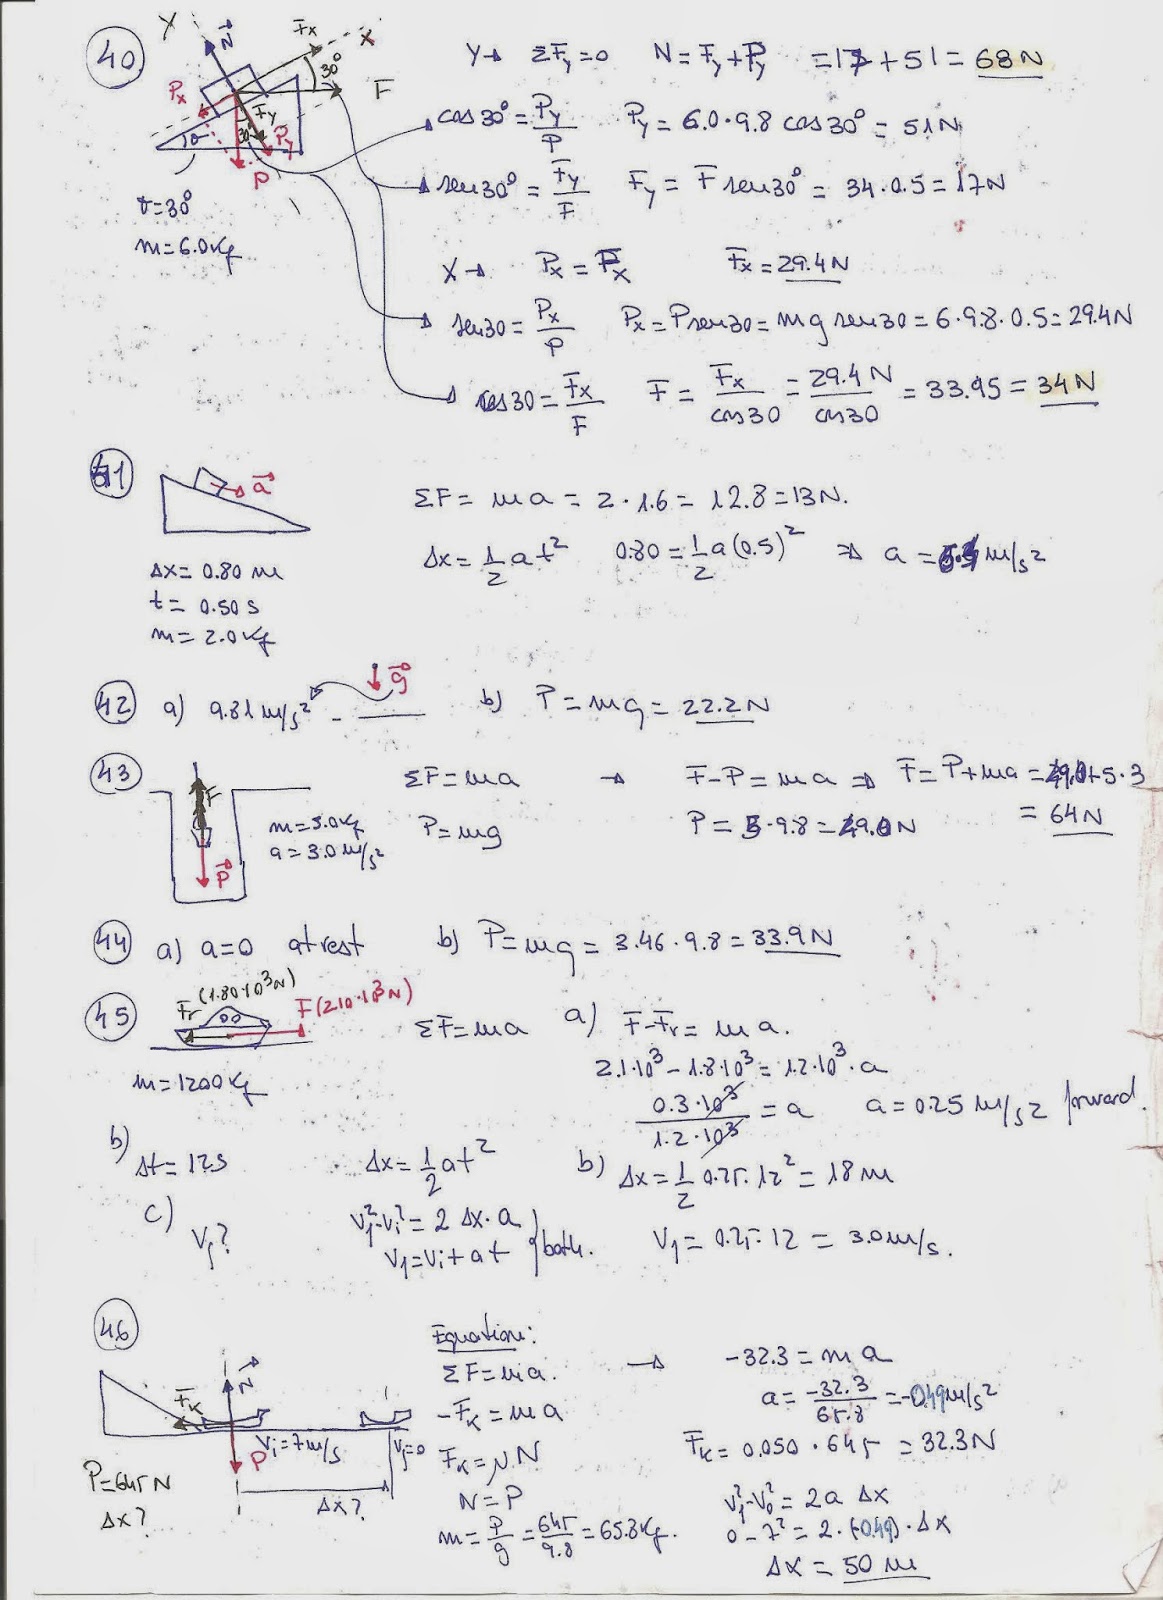 40
Y X
N Fx
30° F
Px Fy
30° Py
θ P
θ=30°
m=6.0kg
Y → ΣFy=0 N=Fy+Py =17+51=68N
cos30°=Py/P Py=6.0·9.8 cos30°=51N
sen30°=Fy/F Fy=F sen30°=34·0.5=17N
X → Px=Fx Fx=29.4N
sen30=Px/P Px=Psen30=mg sen30=6·9.8·0.5=29.4N
cos30=Fx/F F=Fx/cos30=29.4N/cos30=33.95=34N
41
a
Δx=0.80m
t=0.50s
m=2.0kg
ΣF=ma=2·1.6=12.8=13N.
Δx=1/2 at² 0.80=1/2 a(0.5)² ⇒ a= m/s²
42 a) 9.81m/s² g b) P=mg=22.2N
43
F
P
m=5.0kg
a=3.0m/s²
ΣF=ma → F-P=ma ⇒ F=P+ma=49.0+5·3
P=mg P=5·9.8=49.0N =64N
44 a) a=0 at rest b) P=mg=3.46·9.8=33.9N
45
Fr (1.80·10³N) F(2.10·10³N)
m=1200kg
ΣF=ma a) F-Fr=ma.
2.1·10³-1.8·10³=1.2·10³·a
0.3·10³/1.2·10³=a a=0.25m/s² forward.
b) Δt=12s Δx=1/2 at² b) Δx=1/2 0.25·12²=18m
c) Vf? Vf²-Vi²=2Δx·a
Vf=Vi+at } both. Vf=0.25·12=3.0m/s.
46
N
Fk
P Vi=7m/s Vf=0
P=645N
Δx? Δx?
Equation:
ΣF=ma. → -32.3=ma
-Fk=ma a=-32.3/65.8=-0.49m/s²
Fk=μ.N Fk=0.050·645=32.3N
N=P
m=P/g=645/9.8=65.8kg.
Vf²-V0²=2aΔx
0-7²=2·(-0.49)·Δx
Δx=50m